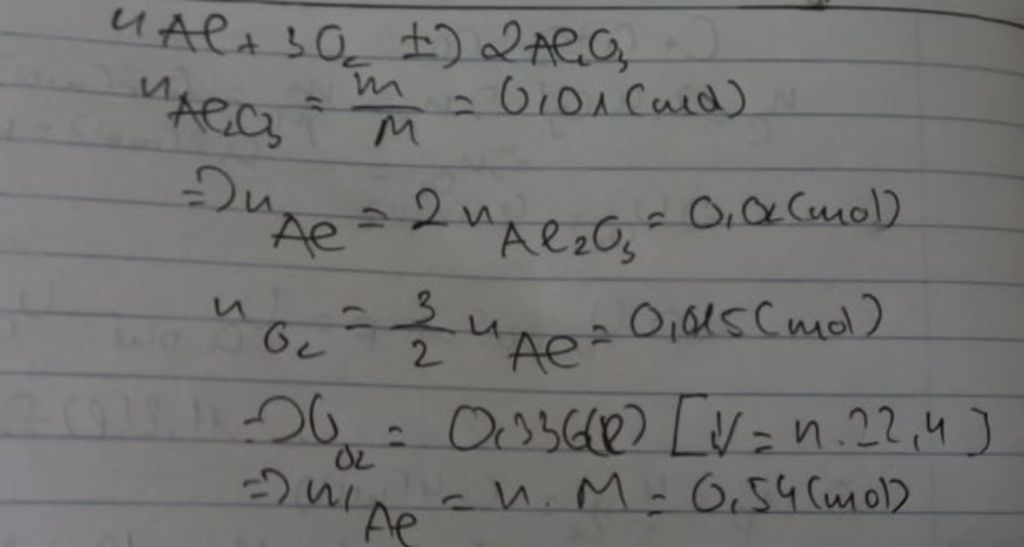 4Al + 3O₂ t°→ 2Al₂O₃
n Al₂O₃ = m/M = 0,01 (mol)
=> n Al = 2 n Al₂O₃ = 0,02 (mol)
n O₂ = 3/2 n Al = 0,015 (mol)
=> V O₂ = 0,336 (l) [V = n.22,4]
=> m Al = n.M = 0,54 (mol)